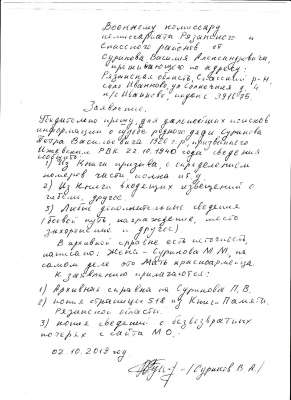 Военному комиссару
комиссариата Рязанского и
Спасского районов от
Сурикова Василия Александровича,
проживающего по адресу:
Рязанская область, Спасский р-н
село Иванково, ул. Солнечная д. 4
п/о Иванково, индекс
Заявление.
Убедительно прошу, для дальнейших поисков
информации о судьбе родного дяди Сурикова
Петра Васильевича г.р., призванного
Ижевским РВК 22.10.1940 года сведения
сообщить:
1) Из Книги призыва, с определением
номеров части полка и т.д.
2) Из Книги входящих извещений о
гибели, другое
3) Любые дополнительные сведения
(боевой путь, награждения, место
захоронения и другое)
В архивной справке есть неточность,
написано: Жена - Сурикова М.М, на
самом деле это Мать красноармейца.
К заявлению прилагаются:
1) Архивная справка на Сурикова П.В.
2) копия страницы 518 из Книги Памяти
Рязанской области.
3) копия сведений о безвозвратных
потерях с сайта М.О.
02.10.2019 год
(Суриков В.А.)